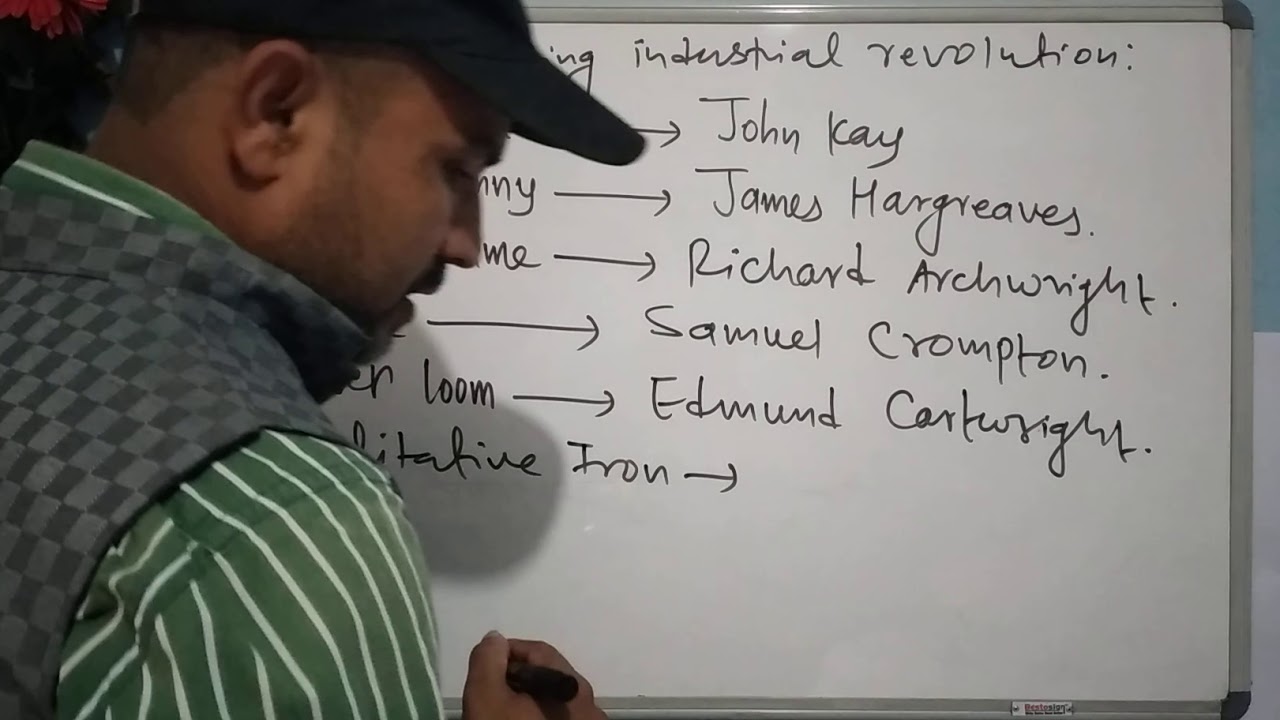 ing industrial revolution:
→ John Kay
nny → James Hargreaves.
me → Richard Archwright.
→ Samuel Crompton.
er loom → Edmund Cartwright.
litative Iron →